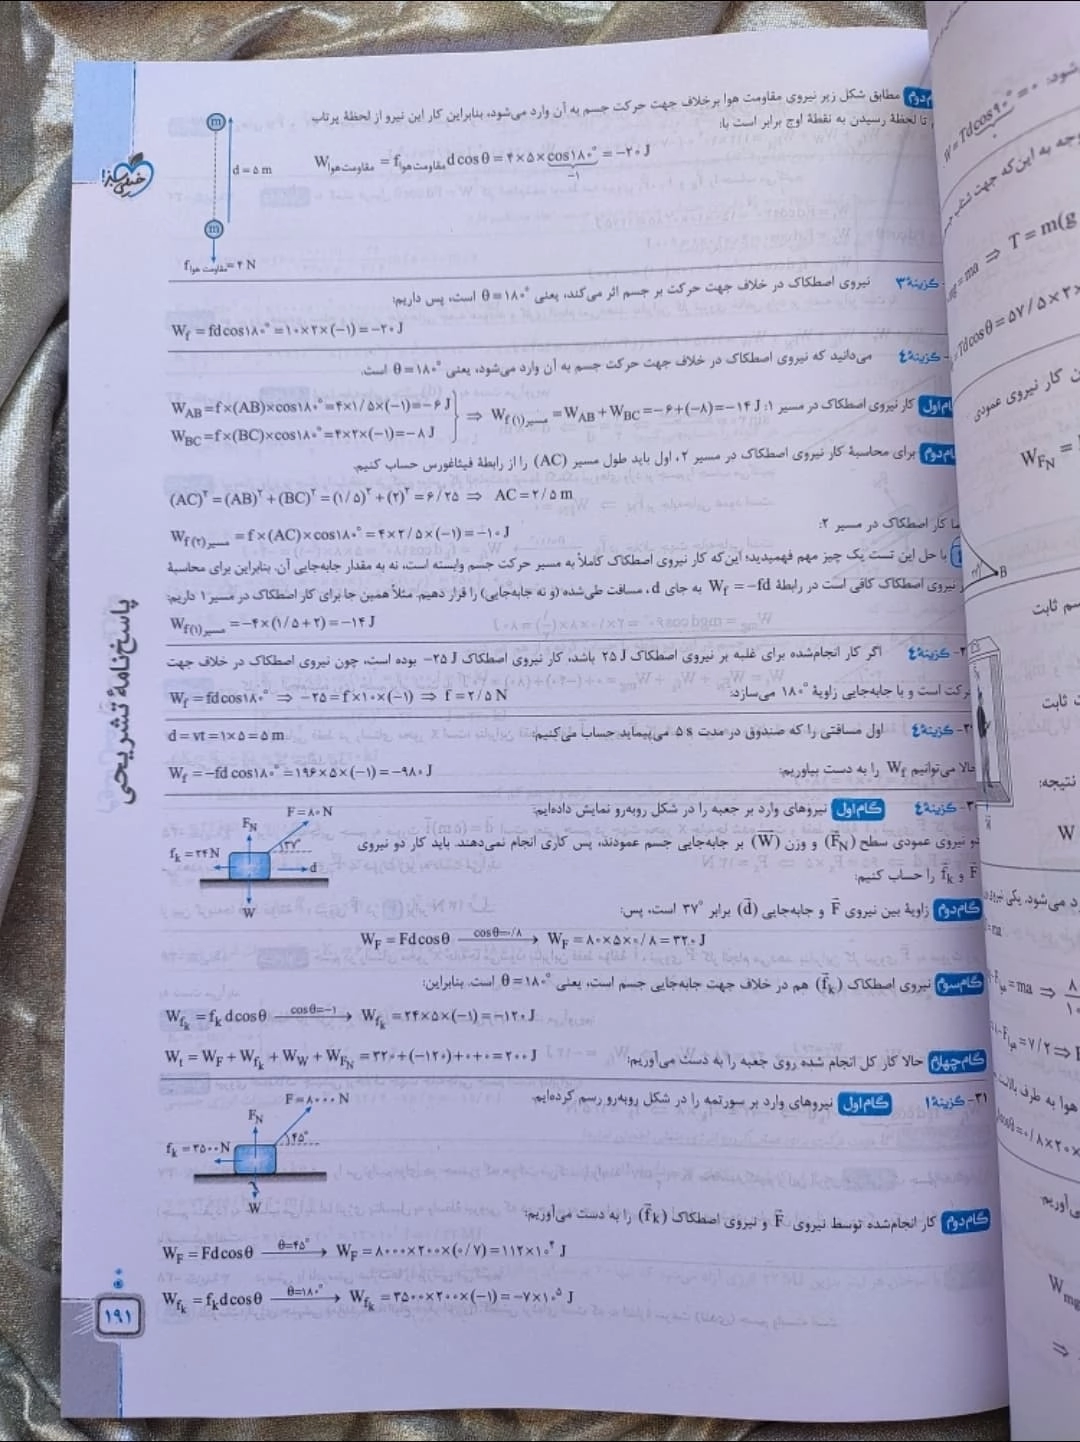 مطابق شکل زیر نیروی مقاومت هوا برخلاف جهت حرکت جسم به آن وارد می‌شود، بنابراین کار این نیرو از لحظهٔ پرتاب
تا لحظهٔ رسیدن به نقطهٔ اوج برابر است با:
W مقاومت هوا = f مقاومت هوا d cosθ = ۴×۵×cos۱۸۰° = −۲۰ J
−۱
m
d = ۵ m
m
f مقاومت هوا = ۴ N
خیلی سبز
گزینهٔ ۳ نیروی اصطکاک در خلاف جهت حرکت بر جسم اثر می‌کند، یعنی θ = ۱۸۰° است، پس داریم:
W_f = fd cos۱۸۰° = ۱۰×۲×(−۱) = −۲۰ J
گزینهٔ ٤ می‌دانید که نیروی اصطکاک در خلاف جهت حرکت جسم به آن وارد می‌شود، یعنی θ = ۱۸۰° است.
کار نیروی اصطکاک در مسیر ۱:
W_AB = f×(AB)×cos۱۸۰° = ۴×۱/۵×(−۱) = −۶ J
W_BC = f×(BC)×cos۱۸۰° = ۴×۲×(−۱) = −۸ J
⇒ W_f(۱) مسیر = W_AB + W_BC = −۶+(−۸) = −۱۴ J
برای محاسبهٔ کار نیروی اصطکاک در مسیر ۲، اول باید طول مسیر (AC) را از رابطهٔ فیثاغورس حساب کنیم.
(AC)² = (AB)² + (BC)² = (۱/۵)² + (۲)² = ۶/۲۵ ⇒ AC = ۲/۵ m
کار اصطکاک در مسیر ۲:
W_f(۲) مسیر = f×(AC)×cos۱۸۰° = ۴×۲/۵×(−۱) = −۱۰ J
با حل این تست یک چیز مهم فهمیدید؛ این‌که کار نیروی اصطکاک کاملاً به مسیر حرکت جسم وابسته است، نه به مقدار جابه‌جایی آن. بنابراین برای محاسبهٔ
نیروی اصطکاک کافی است در رابطهٔ W_f = −fd به جای d، مسافت طی‌شده (و نه جابه‌جایی) را قرار دهیم. مثلاً همین جا برای کار اصطکاک در مسیر ۱ داریم:
W_f(۱) مسیر = −۴×(۱/۵+۲) = −۱۴ J
گزینهٔ ٤ اگر کار انجام‌شده برای غلبه بر نیروی اصطکاک ۲۵ J باشد، کار نیروی اصطکاک −۲۵ J بوده است، چون نیروی اصطکاک در خلاف جهت
حرکت است و با جابه‌جایی زاویهٔ ۱۸۰° می‌سازد:
W_f = fd cos۱۸۰° ⇒ −۲۵ = f×۱۰×(−۱) ⇒ f = ۲/۵ N
گزینهٔ ٤ اول مسافتی را که صندوق در مدت ۵ s می‌پیماید حساب می‌کنیم:
d = vt = ۱×۵ = ۵ m
حالا می‌توانیم W_f را به دست بیاوریم:
W_f = −fd cos۱۸۰° = ۱۹۶×۵×(−۱) = −۹۸۰ J
گزینهٔ ٤ گام اول نیروهای وارد بر جعبه را در شکل روبه‌رو نمایش داده‌ایم:
دو نیروی عمودی سطح (F_N) و وزن (W) بر جابه‌جایی جسم عمودند، پس کاری انجام نمی‌دهند. باید کار دو نیروی
F و f_k را حساب کنیم:
F = ۸۰ N
F_N
۳۷°
f_k = ۲۴ N
d
W
گام دوم زاویهٔ بین نیروی F و جابه‌جایی (d) برابر ۳۷° است، پس:
W_F = Fd cosθ —cosθ=۰/۸→ W_F = ۸۰×۵×۰/۸ = ۳۲۰ J
گام سوم نیروی اصطکاک (f_k) هم در خلاف جهت جابه‌جایی جسم است، یعنی θ = ۱۸۰° است. بنابراین:
W_fk = f_k d cosθ —cosθ=−۱→ W_fk = ۲۴×۵×(−۱) = −۱۲۰ J
گام چهارم حالا کار کل انجام شده روی جعبه را به دست می‌آوریم:
W_t = W_F + W_fk + W_W + W_FN = ۳۲۰+(−۱۲۰)+۰+۰ = ۲۰۰ J
۳۱- گزینهٔ ۱ گام اول نیروهای وارد بر سورتمه را در شکل روبه‌رو رسم کرده‌ایم.
F = ۸۰۰۰ N
F_N
۴۵°
f_k = ۳۵۰۰ N
W
گام دوم کار انجام‌شده توسط نیروی F و نیروی اصطکاک (f_k) را به دست می‌آوریم:
W_F = Fd cosθ —θ=۴۵°→ W_F = ۸۰۰۰×۲۰۰×(۰/۷) = ۱۱۲×۱۰⁴ J
W_fk = f_k d cosθ —θ=۱۸۰°→ W_fk = ۳۵۰۰×۲۰۰×(−۱) = −۷×۱۰⁵ J
پاسخ‌نامهٔ تشریحی
۱۹۱
شود:
W = Td cos۹۰° = ۰
توجه به این‌که جهت شتاب
= ma ⇒ T = m(g
Td cosθ = ۵۷/۵×۲×
کار نیروی عمودی
W_FN =
B
ثابت
ثابت
نتیجه:
W
می‌شود. یکی نیروی
= ma ⇒
= ۷/۲ ⇒
هوا به طرف بالاست
cosθ = ۰/۸×۲۰×
W_mg
⇒